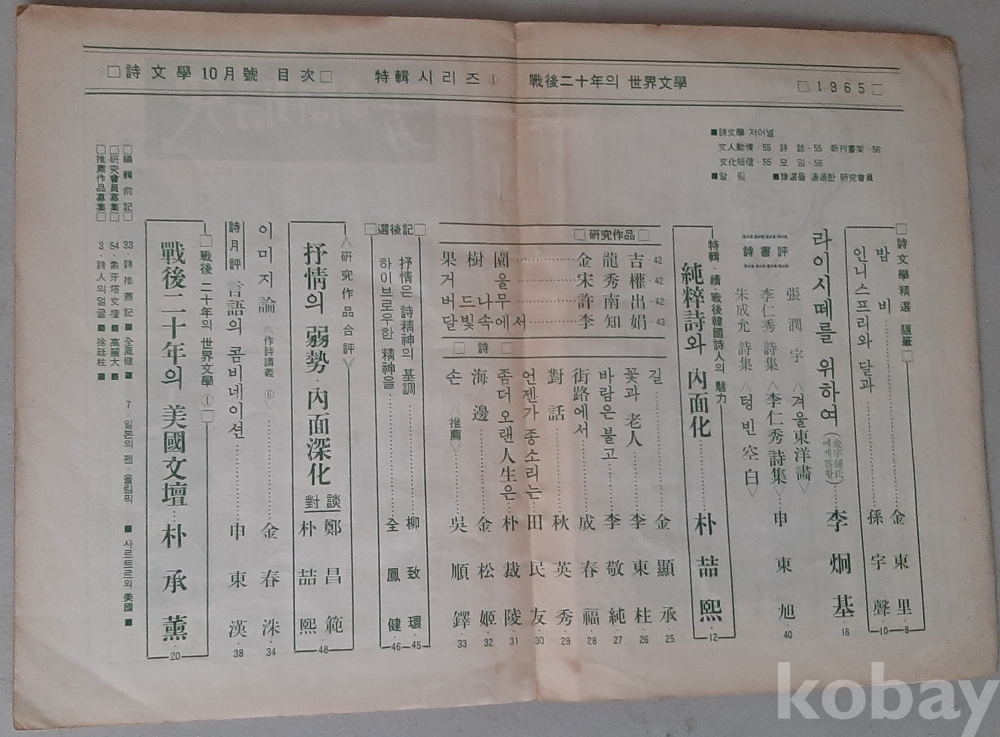 □詩文學 10月號 目次□ 特輯시리즈① 戰後二十年의 世界文學 □1965□
■詩文學 저어널
文人動情·55 詩誌·55 新刊書架·56
文化短信·55 모임·56
■알림 ■推選을 通過한 硏究會員
□詩文學精選 隨筆□
밤비……金東里·8
인니스프리와 달과……孫宇聲·10
라이시떼를 위하여(金宇鍾氏에게 答함)…李炯基·16
詩書評
張潤宇〈겨울東洋畵〉
李仁秀詩集〈李仁秀詩集〉
朱成允詩集〈텅빈 空白〉
申東旭·40
特輯·續·戰後韓國詩人의 魅力
純粹詩와 內面化……朴喆熙·12
□硏究作品□
果樹園……金龍吉·42
거울……宋秀權
버드나무……許南出·42
달빛 속에서……李知娟·43
□詩□
길……金顯承·25
꽃과 老人……李東柱·26
바람은 불고……李敬純·27
街路에서……成春福·28
對話……秋英秀·29
언젠가 종소리는……田民友·30
좀더 오랜 人生은……朴裁陵·31
海邊……金松姬·32
손〈推薦〉……吳順鐸·33
□選後記□
抒情은 詩精神의 基調……柳致環·45
하이브로우한 精神을……全鳳健·46
〈硏究作品合評〉
抒情의 弱勢·內面深化
對談
鄭昌範
朴喆熙·48
이미지論〈作詩講義⑥〉……金春洙·34
詩月評 言語의 콤비네이션……申東漢·38
□戰後 二十年의 世界文學①□
戰後二十年의 美國文壇·朴承薰·20
□編輯前記□ 33·詩推薦記■金鳳健■ 7·일본의 펜·올림픽 ■사르트르와 美國■
□硏究會員募集□ 54·象牙塔文壇■高麗大■
□推薦作品募集□ 3·詩人의 얼굴■徐廷柱■
kobay